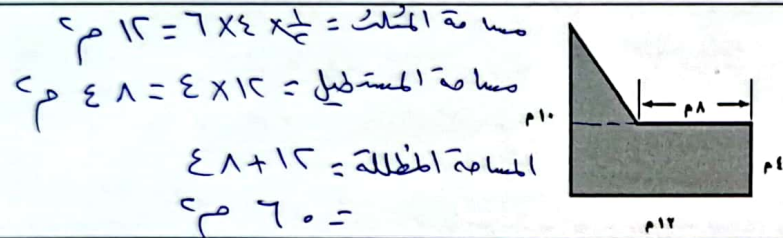 مساحة المثلث = ½ × ٤ × ٦ = ١٢ م٢
مساحة المستطيل = ١٢ × ٤ = ٤٨ م٢
المساحة المظللة = ١٢ + ٤٨
= ٦٠ م٢
٨م
١٠م
٤م
١٢م